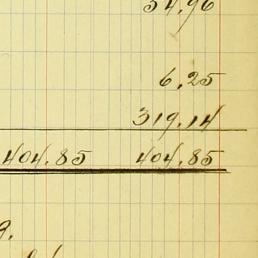 54.96
6.25
319.14
404.85 404.85